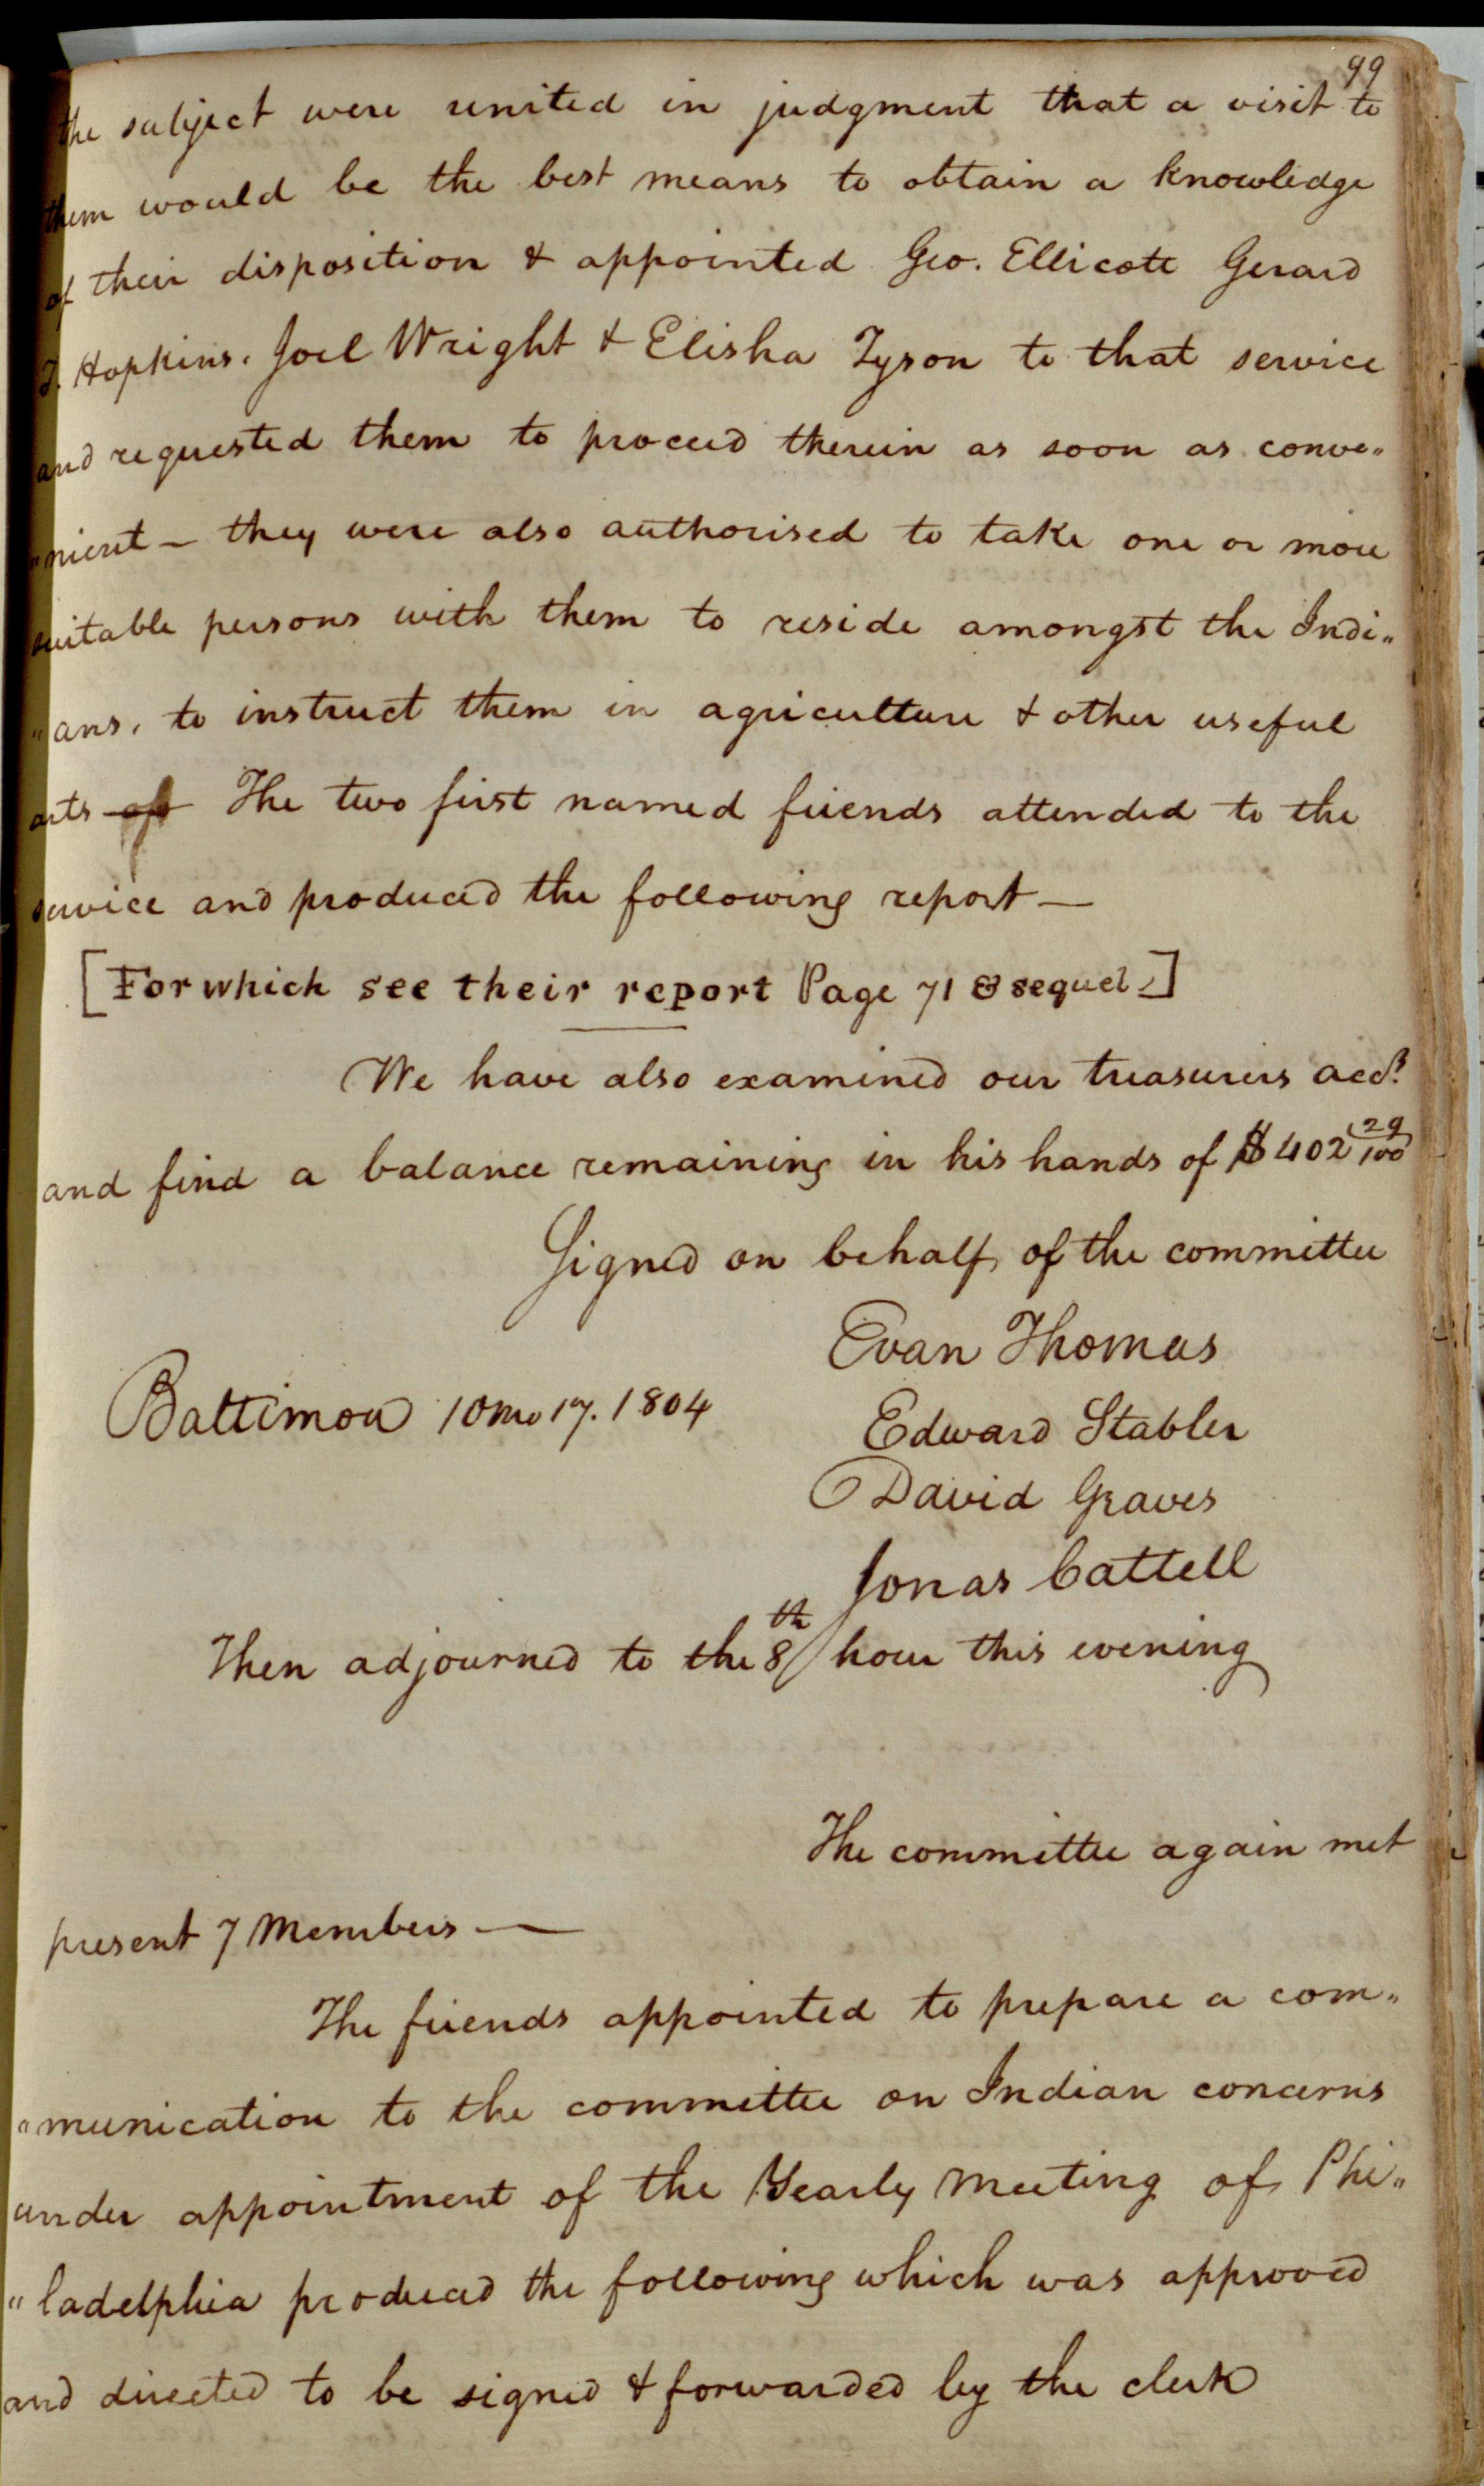 99
the subject were united in judgment that a visit to
them would be the best means to obtain a knowledge
of their disposition & appointed Geo. Ellicott Gerard
T. Hopkins. Joel Wright & Elisha Tyson to that service
and requested them to proceed therein as soon as conve„
„nient — they were also authorised to take one or more
suitable persons with them to reside amongst the Indi„
„ans, to instruct them in agriculture & other useful
arts The two first named friends attended to the
service and produced the following report —
[For which see their report Page 71 & sequel.]
We have also examined our treasurers acct.
and find a balance remaining in his hands of $402 29/100
Signed on behalf of the committee
Evan Thomas
Baltimore 10mo 17. 1804
Edward Stabler
David Graves
Jonas Cattell
Then adjourned to the 8th hour this evening
The committee again met
present 7 Members —
The friends appointed to prepare a com„
„munication to the committee on Indian concerns
under appointment of the Yearly Meeting of Phi„
„ladelphia produced the following which was approved
and directed to be signed & forwarded by the clerk